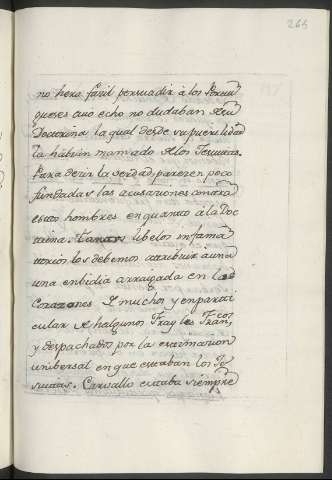 266
no hera facil persuadir à los Portu
gueses cuio echo no dudaban de su
Doctrina la qual desde su puerilidad
la habian mamado de los Jesuitas.
Para decir la verdad parecen poco
fundadas las acusaciones contra
estos hombres en quanto à la Doc
trina. tantos libelos infama
torios los debemos atribuir a una
una enbidia arraigada en los
Corazones de muchos y en parti
cular de halgunos Frayles Fran,cos
y despachados por la estimacion
universal en que estaban los Je
suitas. Carvallo estaba siempre